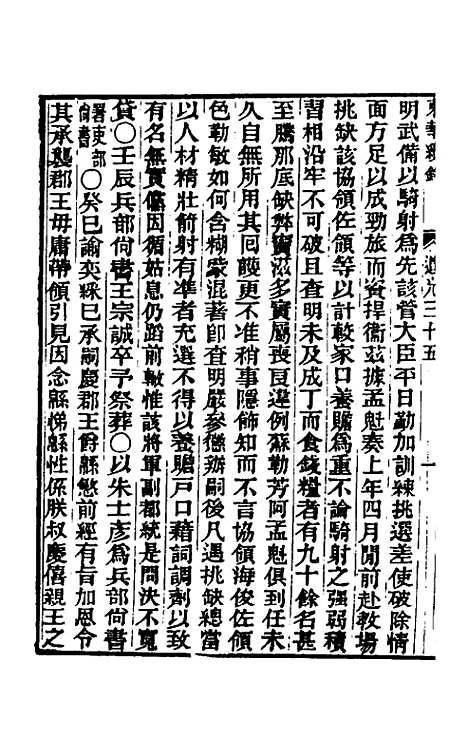 東華續錄 道光三十五 一
明武備以騎射爲先該管大臣平日勤加訓練挑選差使破除情
面方足以成勁旅而資捍衞茲據孟魁奏上年四月閒前赴教場
挑缺該協領佐領等以計較家口養贍爲重不論騎射之强弱積
習相沿牢不可破且查明未及成丁而食錢糧者有九十餘名甚
至騰那底缺弊竇滋多實屬喪良違例蘇勒芳阿孟魁俱到任未
久自無所用其回護更不准稍事隱飾知而不言協領海俊佐領
色勒敏如何含糊蒙混著卽查明嚴參懲辦嗣後凡遇挑缺總當
以人材精壯箭射有準者充選不得以養贍戶口藉詞調劑以致
有名無實儻因循姑息仍蹈前轍惟該將軍副都統是問決不寬
貸〇壬辰兵部尙書王宗誠卒予祭葬〇以朱士彥爲兵部尙書
署吏部尙書〇癸巳諭奕綵已承嗣慶郡王爵緜慜前經有旨加恩令
其承襲郡王毋庸帶領引見因念緜悌緜性係朕叔慶僖親王之